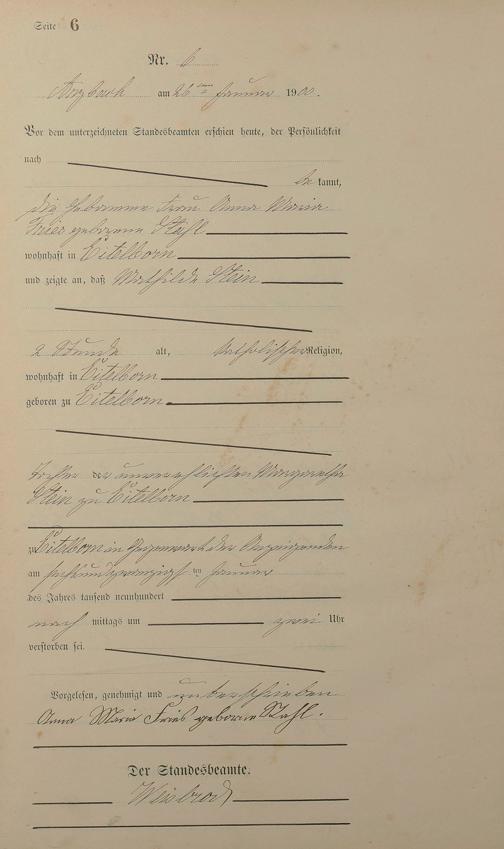 Seite 6
Nr. 6
Arzbach am 26ten Januar 1900.
Vor dem unterzeichneten Standesbeamten erschien heute, der Persönlichkeit
nach
be kannt,
die Hebamme Frau Anna Maria
Fries geborene Stahl
wohnhaft in Eitelborn
und zeigte an, daß Mathilde Stein
2 Stunde alt, katholischer Religion,
wohnhaft in Eitelborn
geboren zu Eitelborn
Tochter der unverehlichten Margaretha
Stein zu Eitelborn
zu Eitelborn in Gegenwart der Anzeigenden
am sechsundzwanzigsten Januar
des Jahres tausend neunhundert
nach mittags um zwei Uhr
verstorben sei.
Vorgelesen, genehmigt und unterschrieben
Anna Maria Fries geborne Stahl.
Der Standesbeamte.
Weisbrod